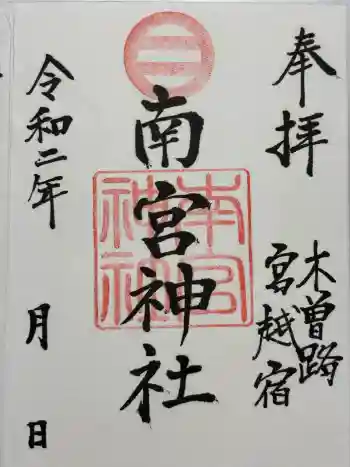 奉拝
木曽路
宮越宿
南宮神社
南宮神社
令和二年
月
日